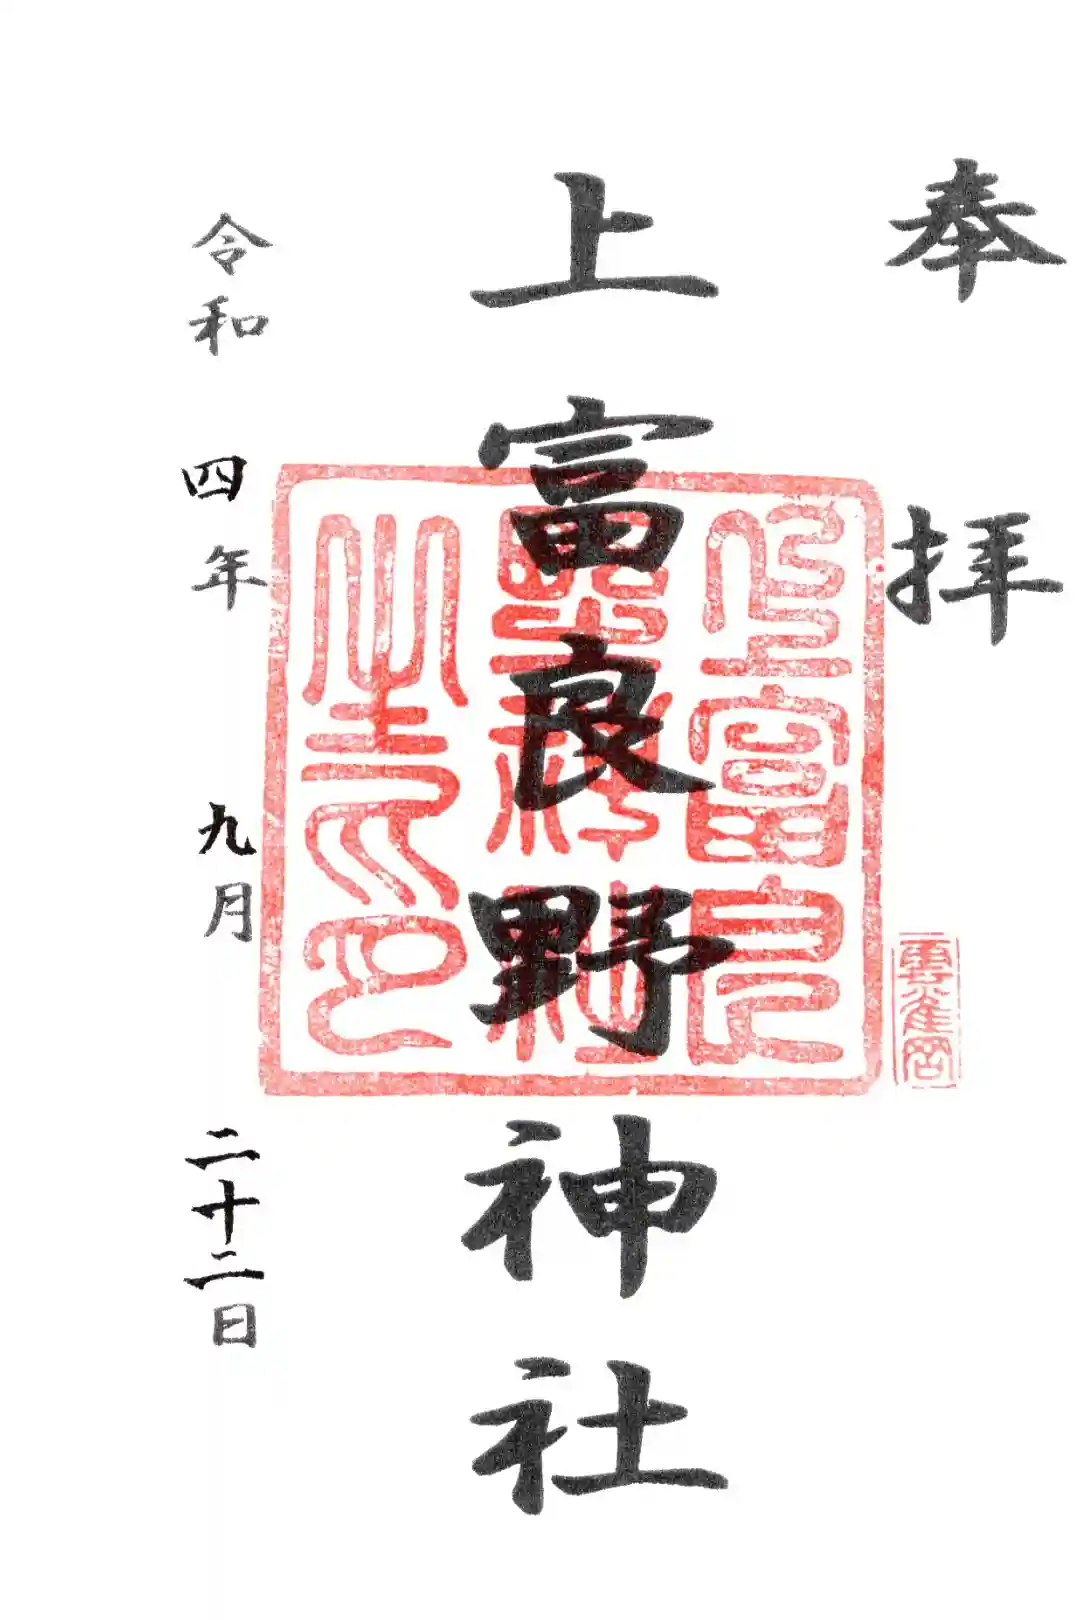 奉拝
上富良野神社
令和四年九月二十二日
上富良
野神社
之印